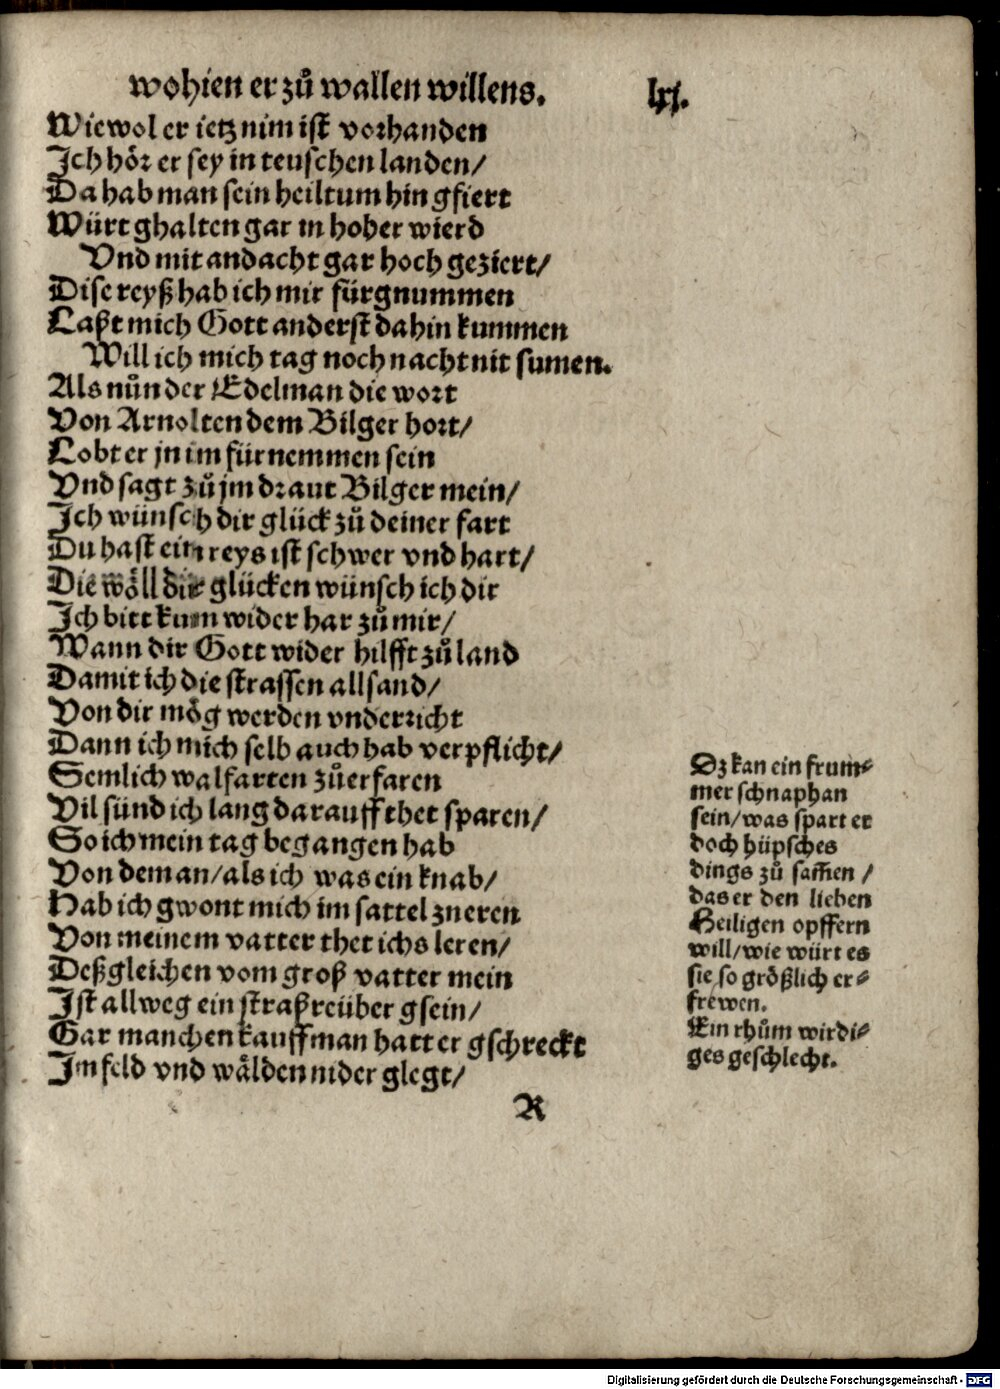 wohien er zů wallen willens. lxj.
Wiewol er ietz nim ist vorhanden
Ich hör er sey in teuschen landen/
Da hab man sein heiltum hin gfiert
Würt ghalten gar in hoher wierd
Vnd mit andacht gar hoch geziert/
Dise reyß hab ich mir fürgnummen
Laßt mich Gott anderst dahin kummen
Will ich mich tag noch nacht nit sumen.
Als nůn der Edelman die wort
Von Arnolten dem Bilger hort/
Lobt er jn im fürnemmen sein
Vnd sagt zů jm draut Bilger mein/
Ich wünsch dir glück zů deiner fart
Du hast ein reys ist schwer vnd hart/
Die wöll dir glücken wünsch ich dir
Ich bitt kum wider har zů mir/
Wann dir Gott wider hilfft zů land
Damit ich die strassen allsand/
Von dir mög werden vnderricht
Dann ich mich selb auch hab verpflicht/
Semlich walfarten zů erfaren
Vil sünd ich lang darauff thet sparen/
So ich mein tag begangen hab
Von dem an/als ich was ein knab/
Hab ich gwont mich im sattel zneren
Von meinem vatter thet ichs leren/
Deßgleichen vom groß vatter mein
Ist allweg ein straßreüber gsein/
Gar manchen kauffman hatt er gschreckt
Im feld vnd wälden nider glegt/
Dz kan ein frum⸗
mer schnaphan
sein/was spart er
doch hüpsches
dings zů sam̃en /
das er den lieben
Heiligen opffern
will/wie würt es
sie so größlich er⸗
frewen.
Ein rhům wirdi⸗
ges geschlecht.
R
Digitalisierung gefördert durch die Deutsche Forschungsgemeinschaft - DFG